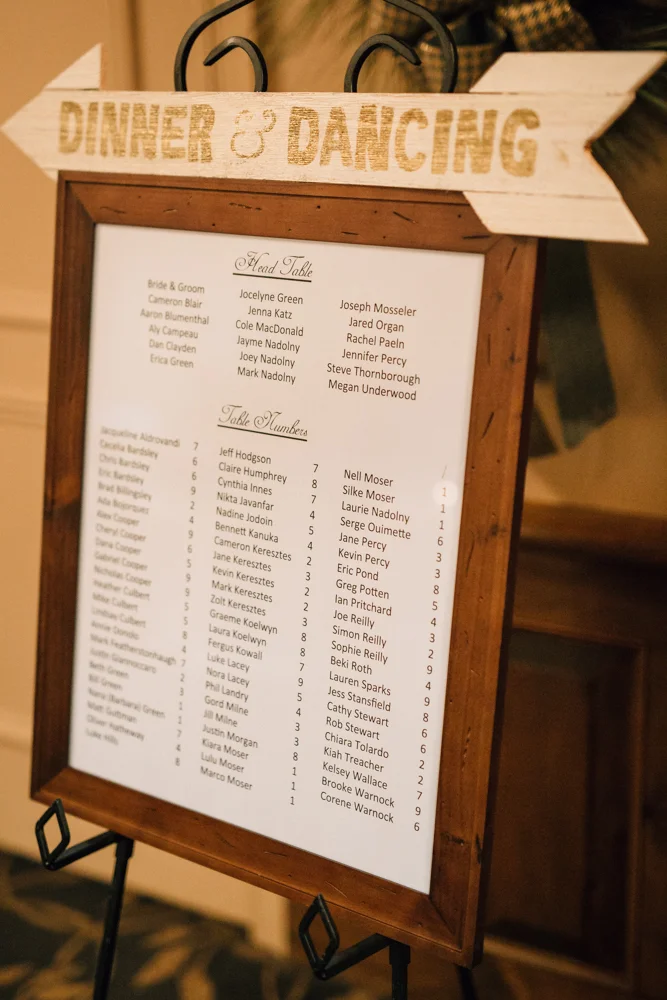 DINNER & DANCING
Head Table
Bride & Groom
Cameron Blair
Aaron Blumenthal
Aly Campeau
Dan Clayden
Erica Green
Jocelyne Green
Jenna Katz
Cole MacDonald
Jayme Nadolny
Joey Nadolny
Mark Nadolny
Joseph Mosseler
Jared Organ
Rachel Paeln
Jennifer Percy
Steve Thornborough
Megan Underwood
Table Numbers
Jacqueline Aldrovandi 7
Cecelia Bardsley 6
Chris Bardsley 6
Eric Bardsley 9
Brad Billingsley 2
Ada Bojorquez 4
Alex Cooper 9
Cheryl Cooper 6
Dana Cooper 5
Gabriel Cooper 9
Nicholas Cooper 5
Heather Culbert 9
Mike Culbert 5
Lindsay Culbert 8
Annie Donolo 4
Mark Featherstonhaugh 7
Justin Giannoccaro 2
Beth Green 3
Bill Green 1
Nana (Barbara) Green 1
Matt Guttman 7
Oliver Hatheway 4
Luke Hills 8
Jeff Hodgson 7
Claire Humphrey 8
Cynthia Innes 7
Nikta Javanfar 4
Nadine Jodoin 5
Bennett Kanuka 4
Cameron Keresztes 2
Jane Keresztes 3
Kevin Keresztes 2
Mark Keresztes 2
Zolt Keresztes 3
Graeme Koelwyn 8
Laura Koelwyn 8
Fergus Kowall 7
Luke Lacey 9
Nora Lacey 5
Phil Landry 4
Gord Milne 3
Jill Milne 3
Justin Morgan 8
Kiara Moser 1
Lulu Moser 1
Marco Moser 1
Nell Moser 1
Silke Moser 1
Laurie Nadolny 1
Serge Ouimette 6
Jane Percy 3
Kevin Percy 3
Eric Pond 8
Greg Potten 5
Ian Pritchard 4
Joe Reilly 3
Simon Reilly 2
Sophie Reilly 9
Beki Roth 4
Lauren Sparks 9
Jess Stansfield 8
Cathy Stewart 6
Rob Stewart 6
Chiara Tolardo 2
Kiah Treacher 2
Kelsey Wallace 7
Brooke Warnock 9
Corene Warnock 6